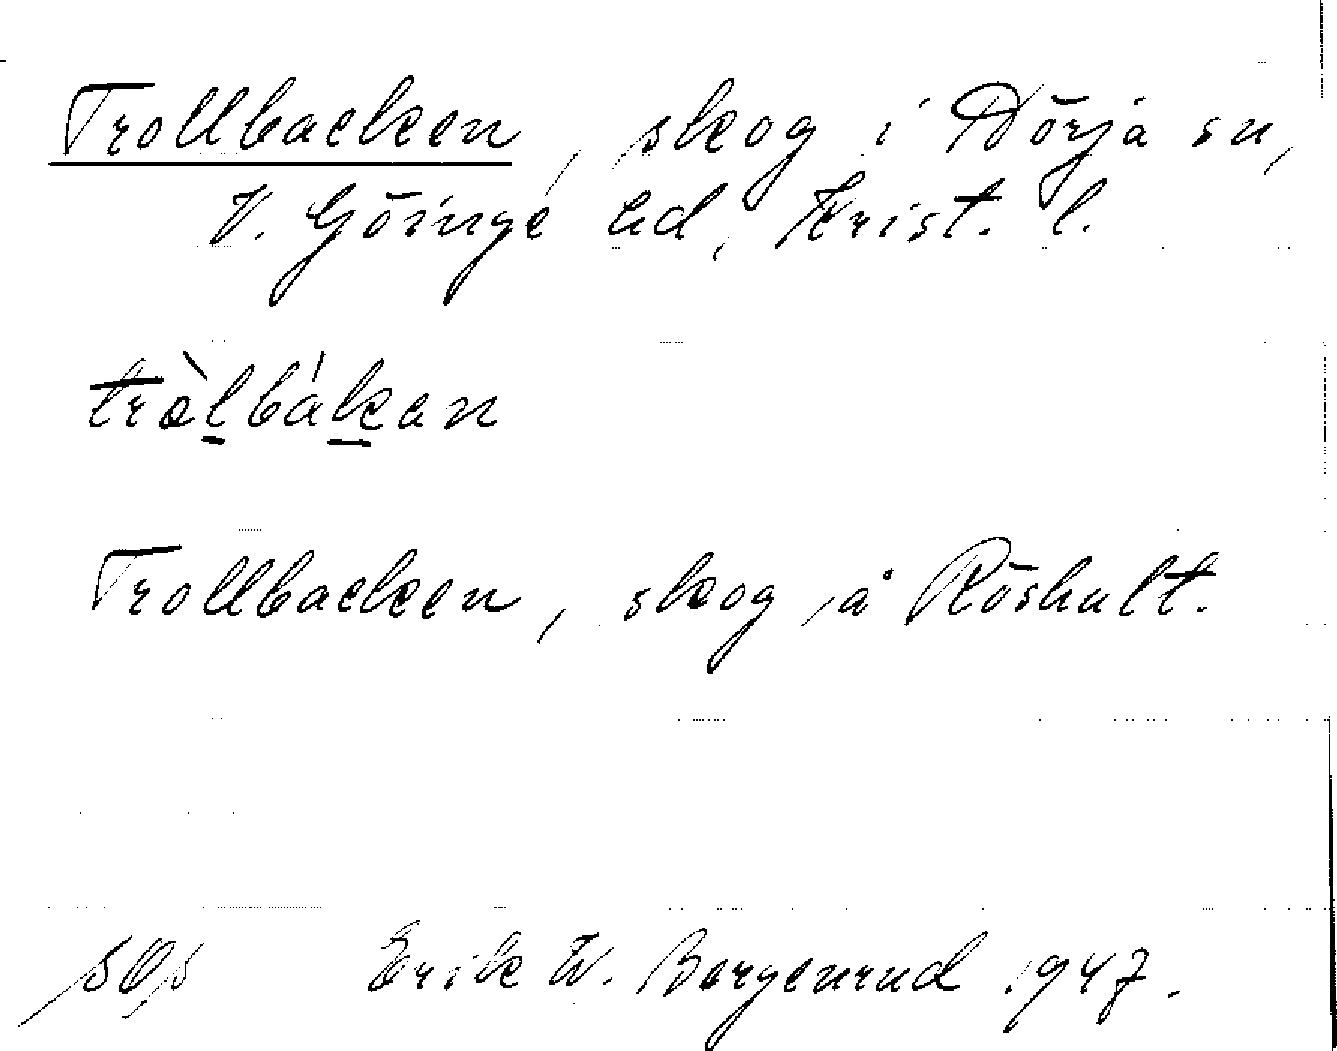 Trollbacken, skog i Nörja sn,
V. Göinge hd, Krist. l.
tròlbákan
Trollbacken, skog å Röshult.
Erik W. Bergenrud 1947.